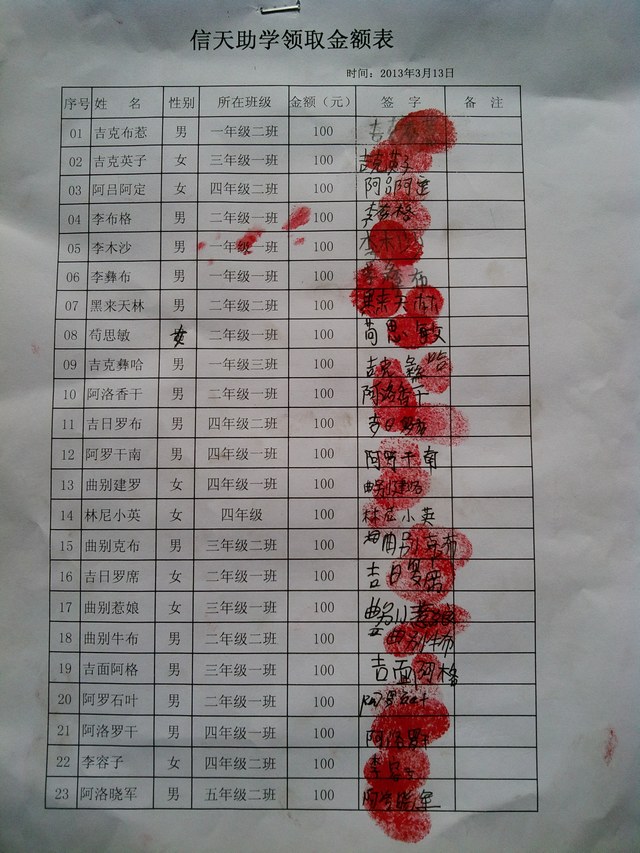 信天助学领取金额表
时间：2013年3月13日
序号 姓 名 性别 所在班级 金额（元） 签 字 备 注
01 吉克布惹 男 一年级二班 100
02 吉克英子 女 三年级一班 100 吉克英子
03 阿吕阿定 女 四年级二班 100 阿吕阿定
04 李布格 男 二年级一班 100 李布格
05 李木沙 男 一年级一班 100 李木沙
06 李彝布 男 一年级一班 100 李彝布
07 黑来天林 男 二年级二班 100 黑来天林
08 苟思敏 女 二年级一班 100 苟思敏
09 吉克彝哈 男 一年级三班 100 吉克彝哈
10 阿洛香干 男 二年级一班 100 阿洛香干
11 吉日罗布 男 四年级二班 100
12 阿罗干南 男 四年级一班 100 阿罗干南
13 曲别建罗 女 四年级一班 100
14 林尼小英 女 四年级 100 林尼小英
15 曲别克布 男 三年级二班 100 曲别克布
16 吉日罗席 女 二年级一班 100 吉日罗席
17 曲别惹娘 女 三年级一班 100
18 曲别牛布 男 二年级二班 100 曲别牛布
19 吉面阿格 男 三年级一班 100 吉面阿格
20 阿罗石叶 男 二年级一班 100 阿罗石叶
21 阿洛罗干 男 四年级一班 100 阿洛罗干
22 李容子 女 四年级二班 100 李容子
23 阿洛晓军 男 五年级二班 100